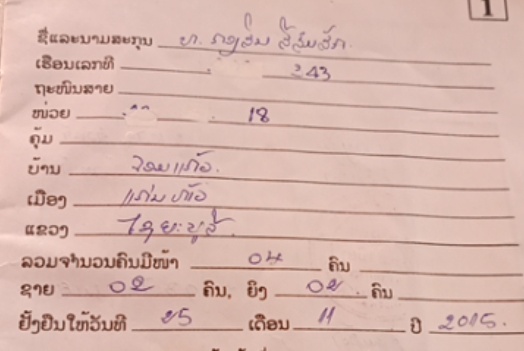 1
ຊື່ແລະນາມສະກຸນ ທ.
ເຮືອນເລກທີ 243
ຖະໜົນສາຍ
ໜ່ວຍ 18
ຄຸ້ມ
ບ້ານ ຈອມແກ້ວ
ເມືອງ ແກ່ນທ້າວ
ແຂວງ ໄຊຍະບູລີ
ລວມຈຳນວນຄົນມີໜ້າ 04 ຄົນ
ຊາຍ 02 ຄົນ, ຍິງ 02 ຄົນ
ຢັ້ງຢືນໃຫ້ວັນທີ 25 ເດືອນ 11 ປີ 2015.